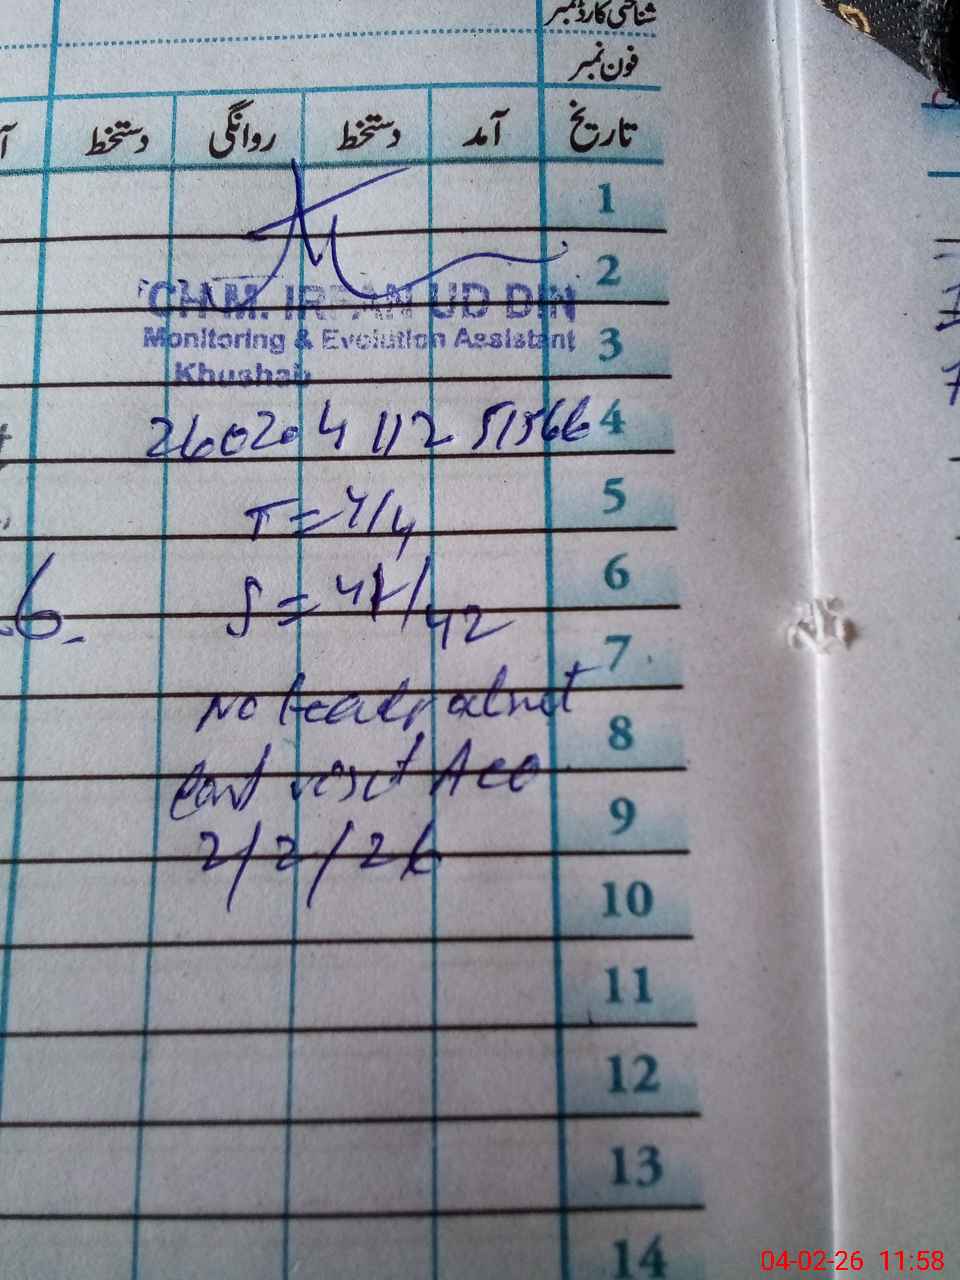 شناختی کارڈ نمبر
فون نمبر
تاریخ آمد دستخط روانگی دستخط آ
1
2
CH.M. IRFAN UD DIN
Monitoring & Evolution Assistant
3
Khushab
2602041125 51566 4
T = 4/4
5
S = 41/42
6
6.
7
No
8
visit AEO
9
2/2/26
10
11
12
13
14
04-02-26 11:58